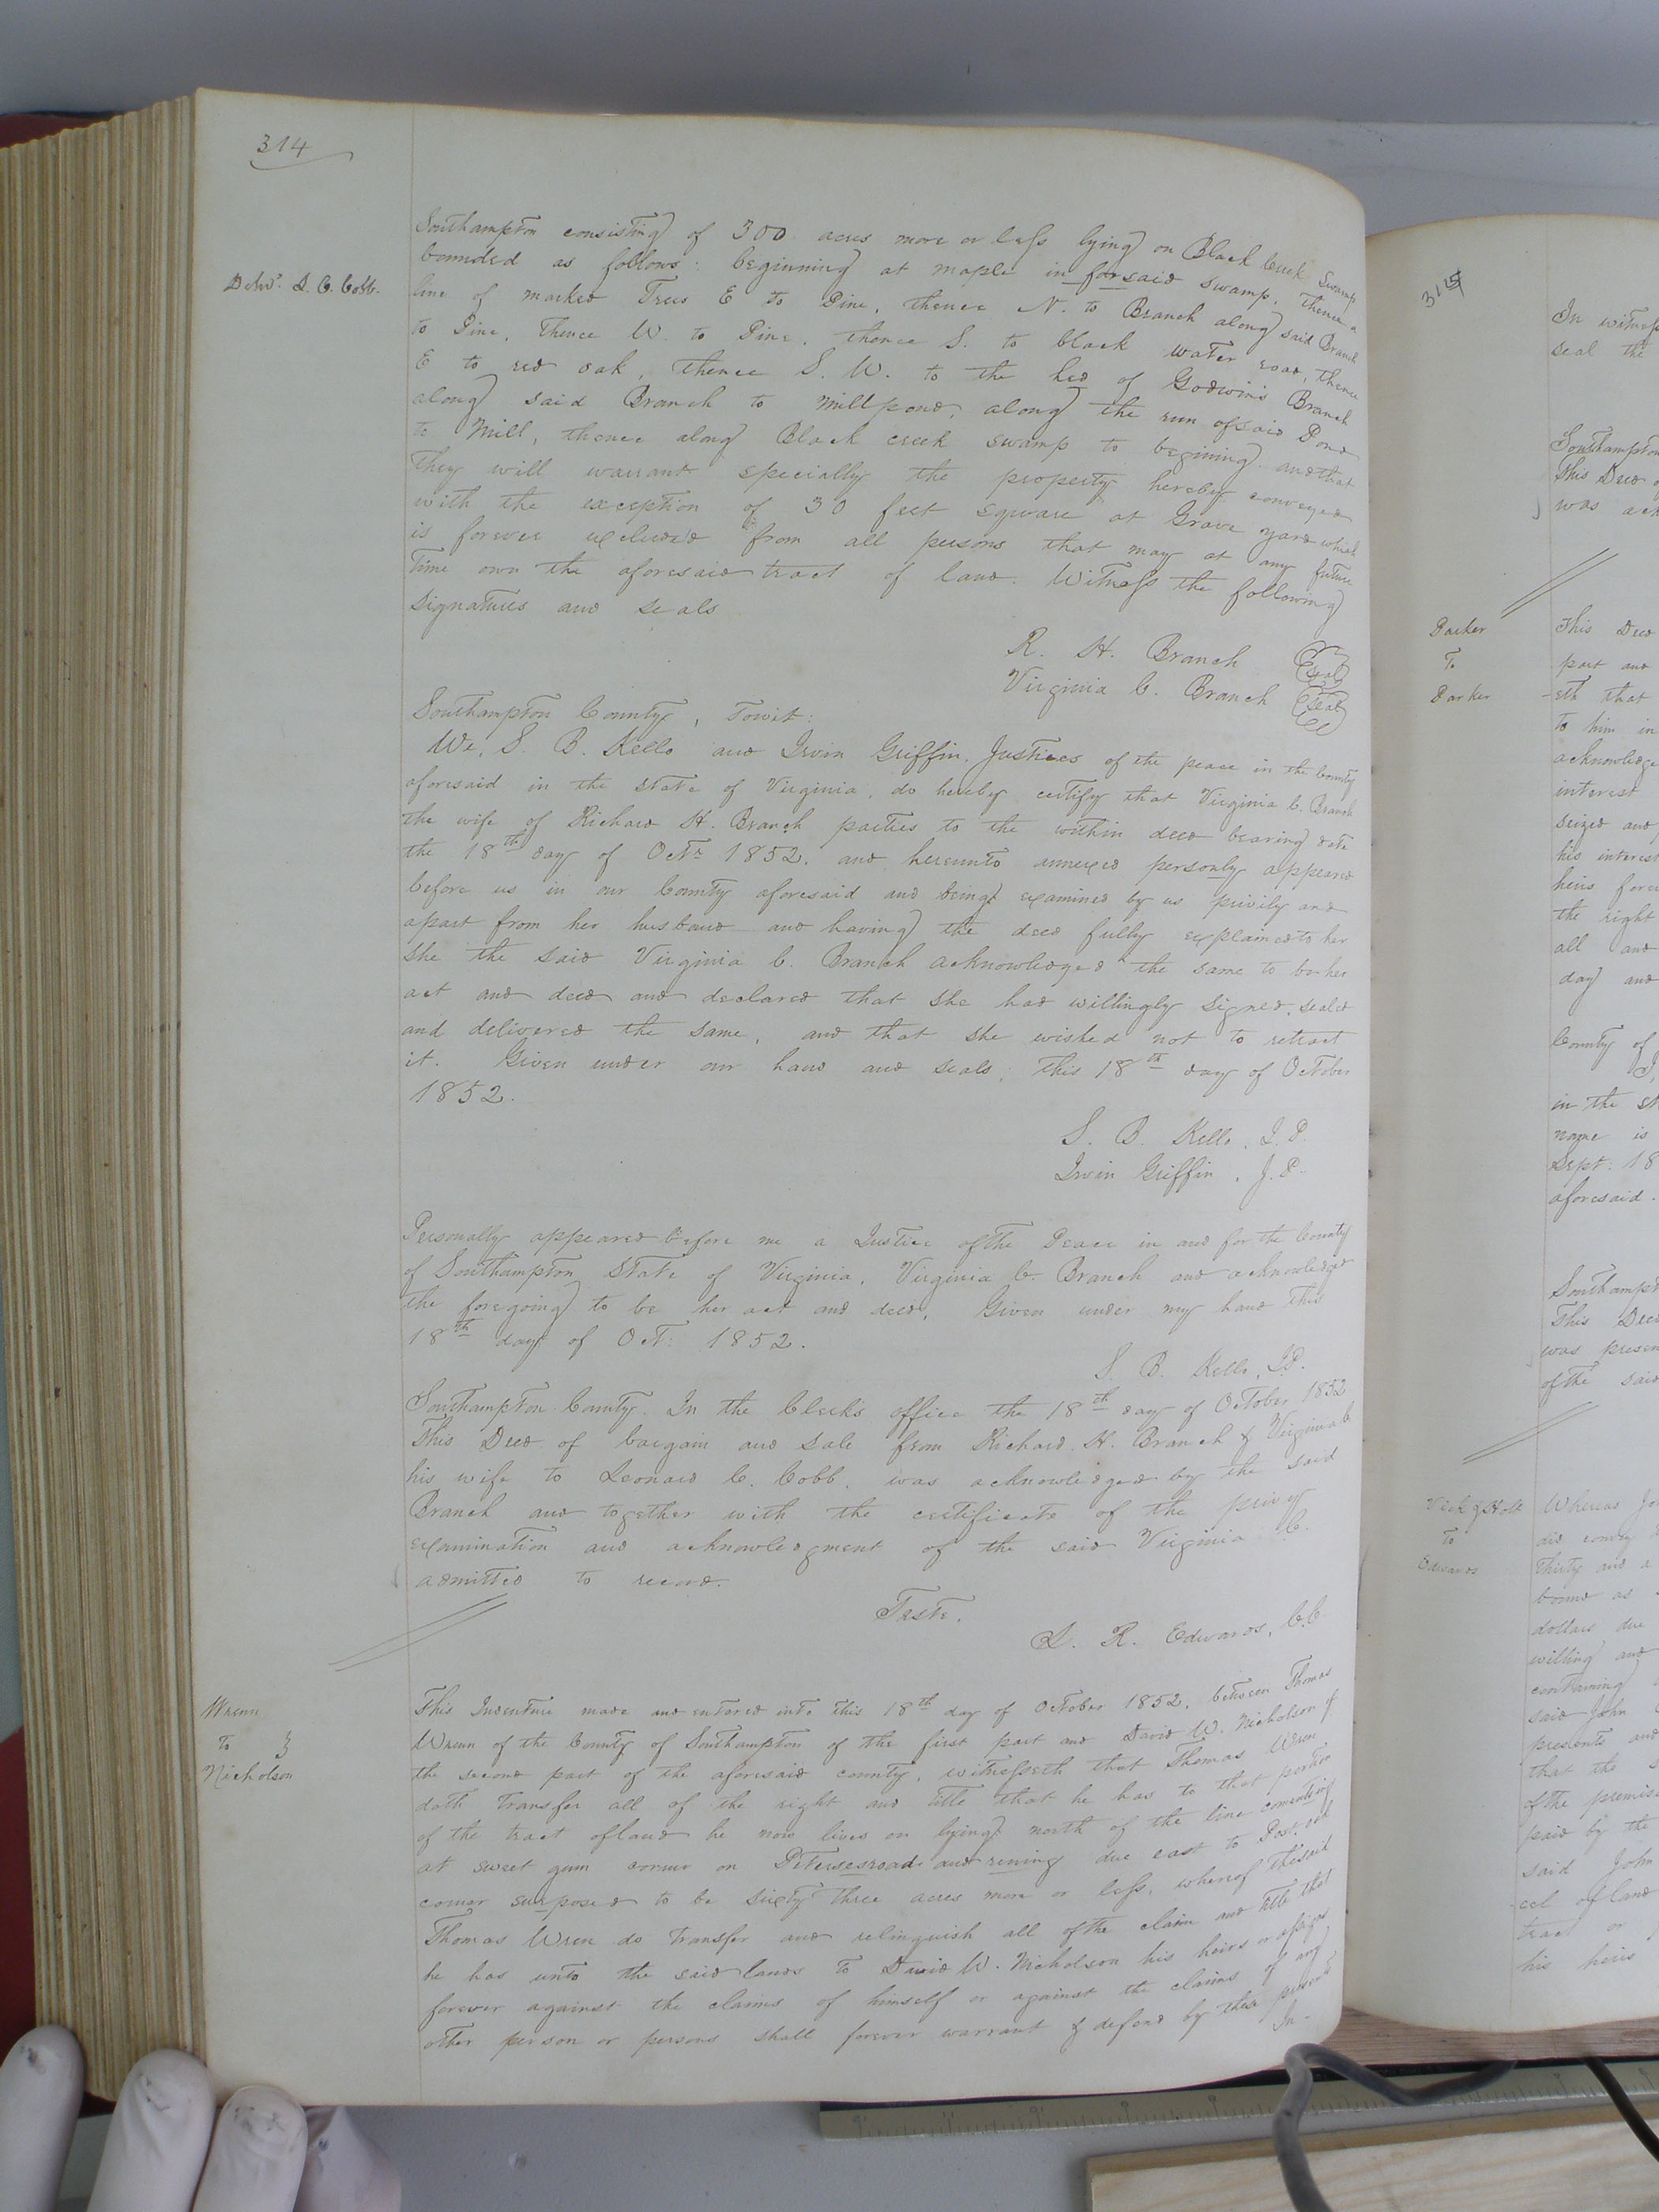 314
Southampton consisting of 300 acres more or less lying on Black Creek Swamp
Delivd. L. C. Cobb.
bounded as follows: beginning at maple in forsaid swamp, thence a
line of marked Trees E to Pine, thence N. to Branch along said Branch
to Pine, Thence W. to Pine, thence S. to black water road, thence
E to red oak, thence S. W. to the hed of Godwin's Branch
along said Branch to Millpond, along the run of said Pond
to Mill, thence along Black creek swamp to begining and that
They will warrant specially the property hereby conveyed
with the exception of 30 feet square at Grave yard which
is forever excluded from all persons that may at any future
Time own the aforesaid tract of land. Witness the following
signatures and seals
R. H. Branch Seal
Virginia C. Branch Seal
Southampton County, Towit:
We, S. B. Kello and Irvin Griffin, Justices of the peace in the County
aforesaid in the State of Virginia, do hereby certify that Virginia C. Branch
the wife of Richard H. Branch parties to the within deed bearing date
the 18th day of Octr. 1852, and hereunto annexed personly appeared
before us in our County aforesaid and being examined by us privily and
apart from her husband and having the deed fully explained to her
she the said Virginia C. Branch acknowledged the same to be her
act and deed and declared that she had willingly signed, sealed
and delivered the same, and that she wished not to retract
it. Given under our hand and seals, this 18th day of October
1852.
S. B. Kello, J. P.
Irvin Griffin, J. P.
Personally appeared before me a Justice of the Peace in and for the County
of Southampton State of Virginia, Virginia C. Branch and acknowledged
the foregoing to be her act and deed, Given under my hand this
18th day of Oct: 1852.
S. B. Kello, J.P.
Southampton County. In the Clerk's office the 18th day of October 1852
This Deed of bargain and sale from Richard H. Branch & Virginia C
his wife to Leonard C. Cobb, was acknowledged by the said
Branch and together with the certificate of the privy
examination and acknowledgment of the said Virginia C.
admitted to record.
Teste.
L. R. Edwards, C.C.
Wrenn
To
Nicholson
This Indenture made and entered into this 18th day of October 1852, between Thomas
Wrenn of the County of Southampton of the first part and David W. Nicholson of
the second part of the aforesaid county, witnesseth that Thomas Wren
doth Transfer all of the right and title that he has to that portion
of the tract of land he now lives on lying north of the line
at sweet gum corner on and runing due east to Post, oak
corner surposed to be sixty three acres more or less, whereof the said
Thomas Wren do transfer and relinquish all of the claim and title that
he has unto the said lands to David W. Nicholson his heirs or assigns
forever against the claims of himself or against the claims of any
other person or persons shall forever warrant & defend by these presents
In-
315
In witness
seal the
Southampton
This Deed
was ack
Parker
To
Parker
This Deed
part and
-eth that
to him in
acknowledge
interest
seized and
his interest
heirs fore
the right
all and
day and
County of
in the St
name is
Sept. 18
aforesaid.
Southampt
This Deed
was presen
of the said
To
Edwards
Whereas Jo
did convey
Thirty and a
bound as
dollars due
willing and
containing
said John
presents and
that the
of the premis
paid by the
said John
cel of land
tract or
his heirs